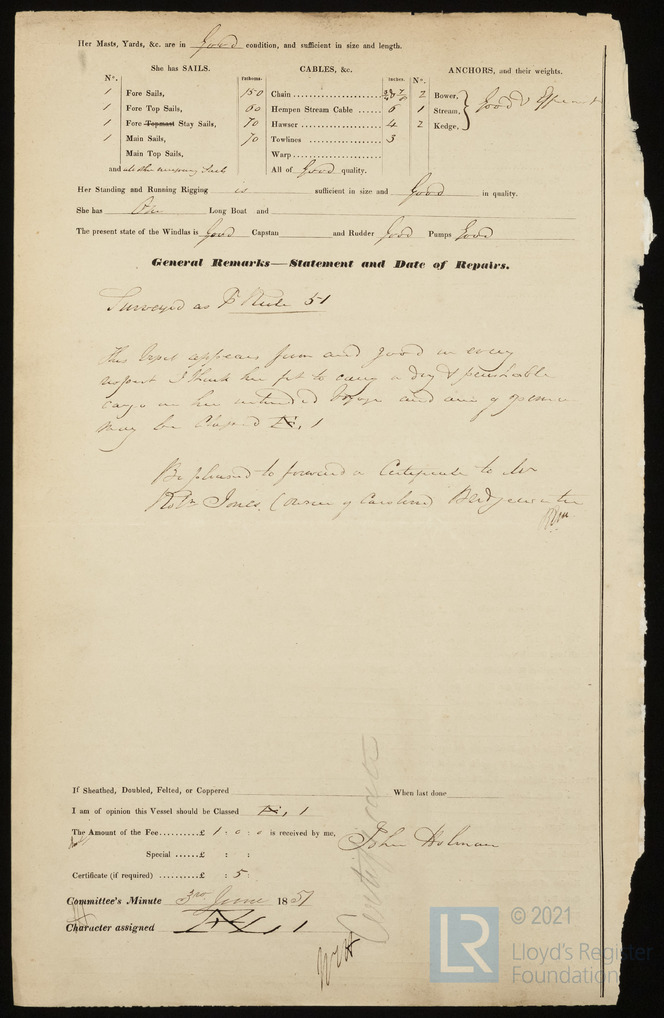 Her Masts, Yards, &c. are in Good condition, and sufficient in size and length.
She has SAILS.
CABLES, &c.
ANCHORS, and their weights.
N°.
Fathoms.
Inches.
N°.
1 Fore Sails,
150 Chain
2 Bower,
Good &
1 Fore Top Sails,
60 Hempen Stream Cable ...... 6
1 Stream,
1 Fore Topmast Stay Sails,
70 Hawser 4
2 Kedge,
1 Main Sails,
70 Towlines 3
Main Top Sails,
Warp
and all other necessary Sails
All of Good quality.
Her Standing and Running Rigging is sufficient in size and Good in quality.
She has One Long Boat and
The present state of the Windlas is Good Capstan and Rudder Good Pumps Good
General Remarks—Statement and Date of Repairs.
Surveyed as P Rule 51
This Vessel appears firm and good in every
respect I think her fit to carry a dry & perishable
cargo on her intended Voyage and am of opinion
may be Classed Æ, 1
Be pleased to forward a Certificate to Mr
Robt Jones, (owner of Caroline) Bridgewater
If Sheathed, Doubled, Felted, or Coppered When last done
I am of opinion this Vessel should be Classed Æ, 1
The Amount of the Fee..........£ 1 : 0 : 0 is received by me,
John Holman
Special ......£ : :
Certificate (if required) ......£ : 5 :
Committee's Minute 3rd June 1851
Character assigned Æ, 1
Certificate
© 2021
LR
Lloyd's Register
Foundation